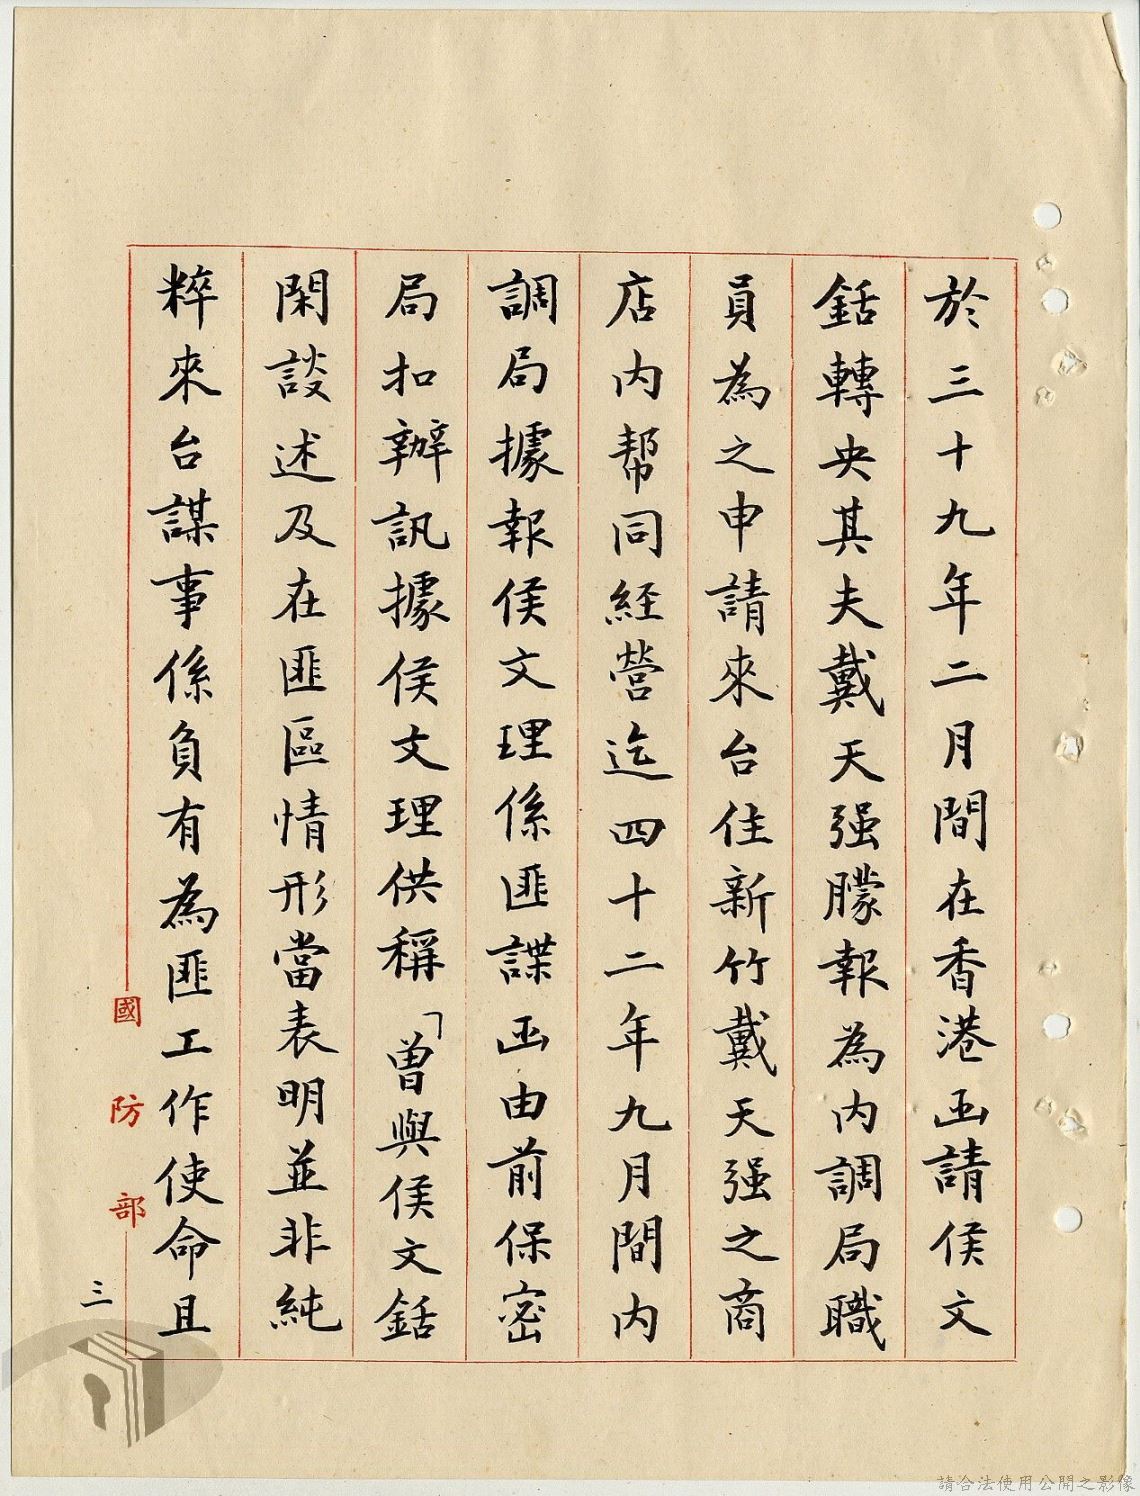 於三十九年二月間在香港函請侯文
銛轉央其夫戴天强朦報為內調局職
員為之申請來台住新竹戴天强之商
店內帮同經營迄四十二年九月間內
調局據報侯文理係匪諜函由前保密
局扣辦訊據侯文理供稱「曾與侯文銛
閑談述及在匪區情形當表明並非純
粹來台謀事係負有為匪工作使命且
國防部
三
請合法使用公開之影像